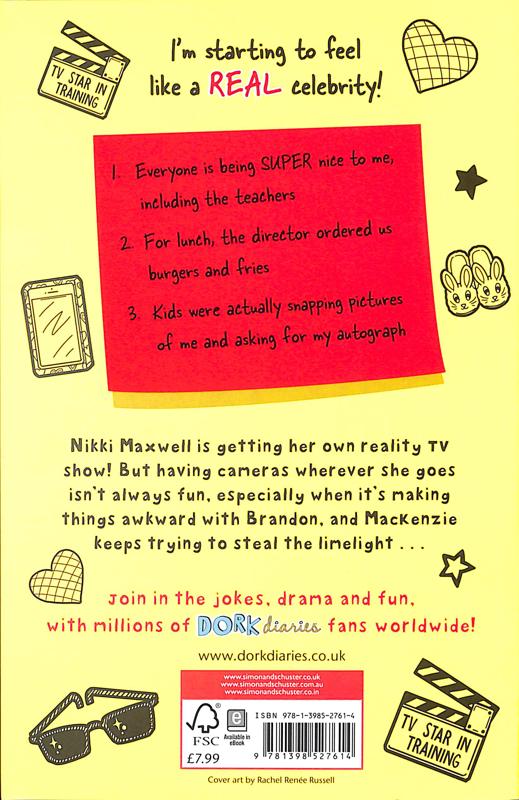 TV STAR IN
TRAINING
I'm starting to feel
like a REAL celebrity!
1. Everyone is being SUPER nice to me,
including the teachers
2. For lunch, the director ordered us
burgers and fries
3. Kids were actually snapping pictures
of me and asking for my autograph
Nikki Maxwell is getting her own reality TV
show! But having cameras wherever she goes
isn't always fun, especially when it's making
things awkward with Brandon, and MacKenzie
keeps trying to steal the limelight . . .
Join in the jokes, drama and fun,
with millions of DORK diaries fans worldwide!
www.dorkdiaries.co.uk
www.simonandschuster.co.uk
www.simonandschuster.com.au
www.simonandschuster.co.in
FSC
£7.99
e
Available in
eBook
ISBN 978-1-3985-2761-4
9 781398 527614
TV STAR IN
TRAINING
Cover art by Rachel Renée Russell